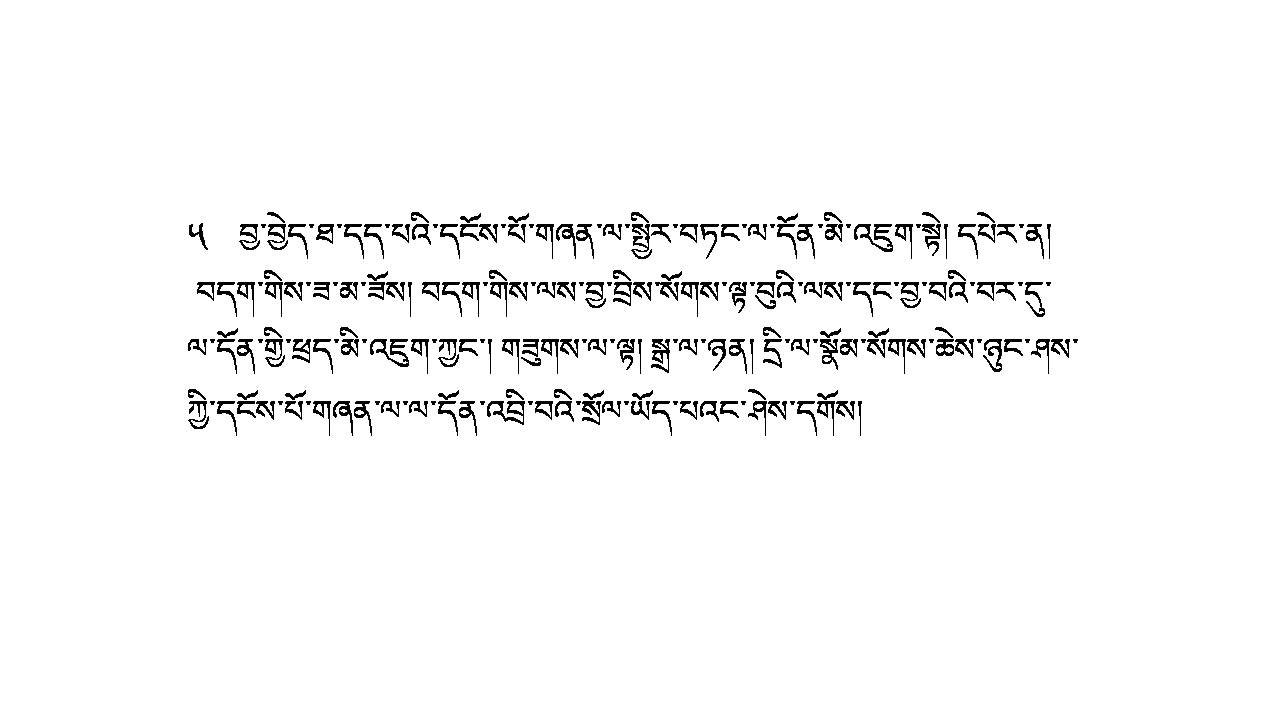 ༥ བྱ་བྱེད་ཐ་དད་པའི་དངོས་པོ་གཞན་ལ་སྤྱིར་བཏང་ལ་དོན་མི་འཇུག་སྟེ། དཔེར་ན།
བདག་གིས་ཟ་མ་ཟོས། བདག་གིས་ལས་བྱ་བྲིས་སོགས་ལྟ་བུའི་ལས་དང་བྱ་བའི་བར་དུ་
ལ་དོན་གྱི་ཕྲད་མི་འཇུག་ཀྱང་། གཟུགས་ལ་ལྟ། སྒྲ་ལ་ཉན། དྲི་ལ་སྣོམ་སོགས་ཆེས་ཉུང་ཤས་
ཀྱི་དངོས་པོ་གཞན་ལ་ལ་དོན་འབྲི་བའི་སྲོལ་ཡོད་པའང་ཤེས་དགོས།